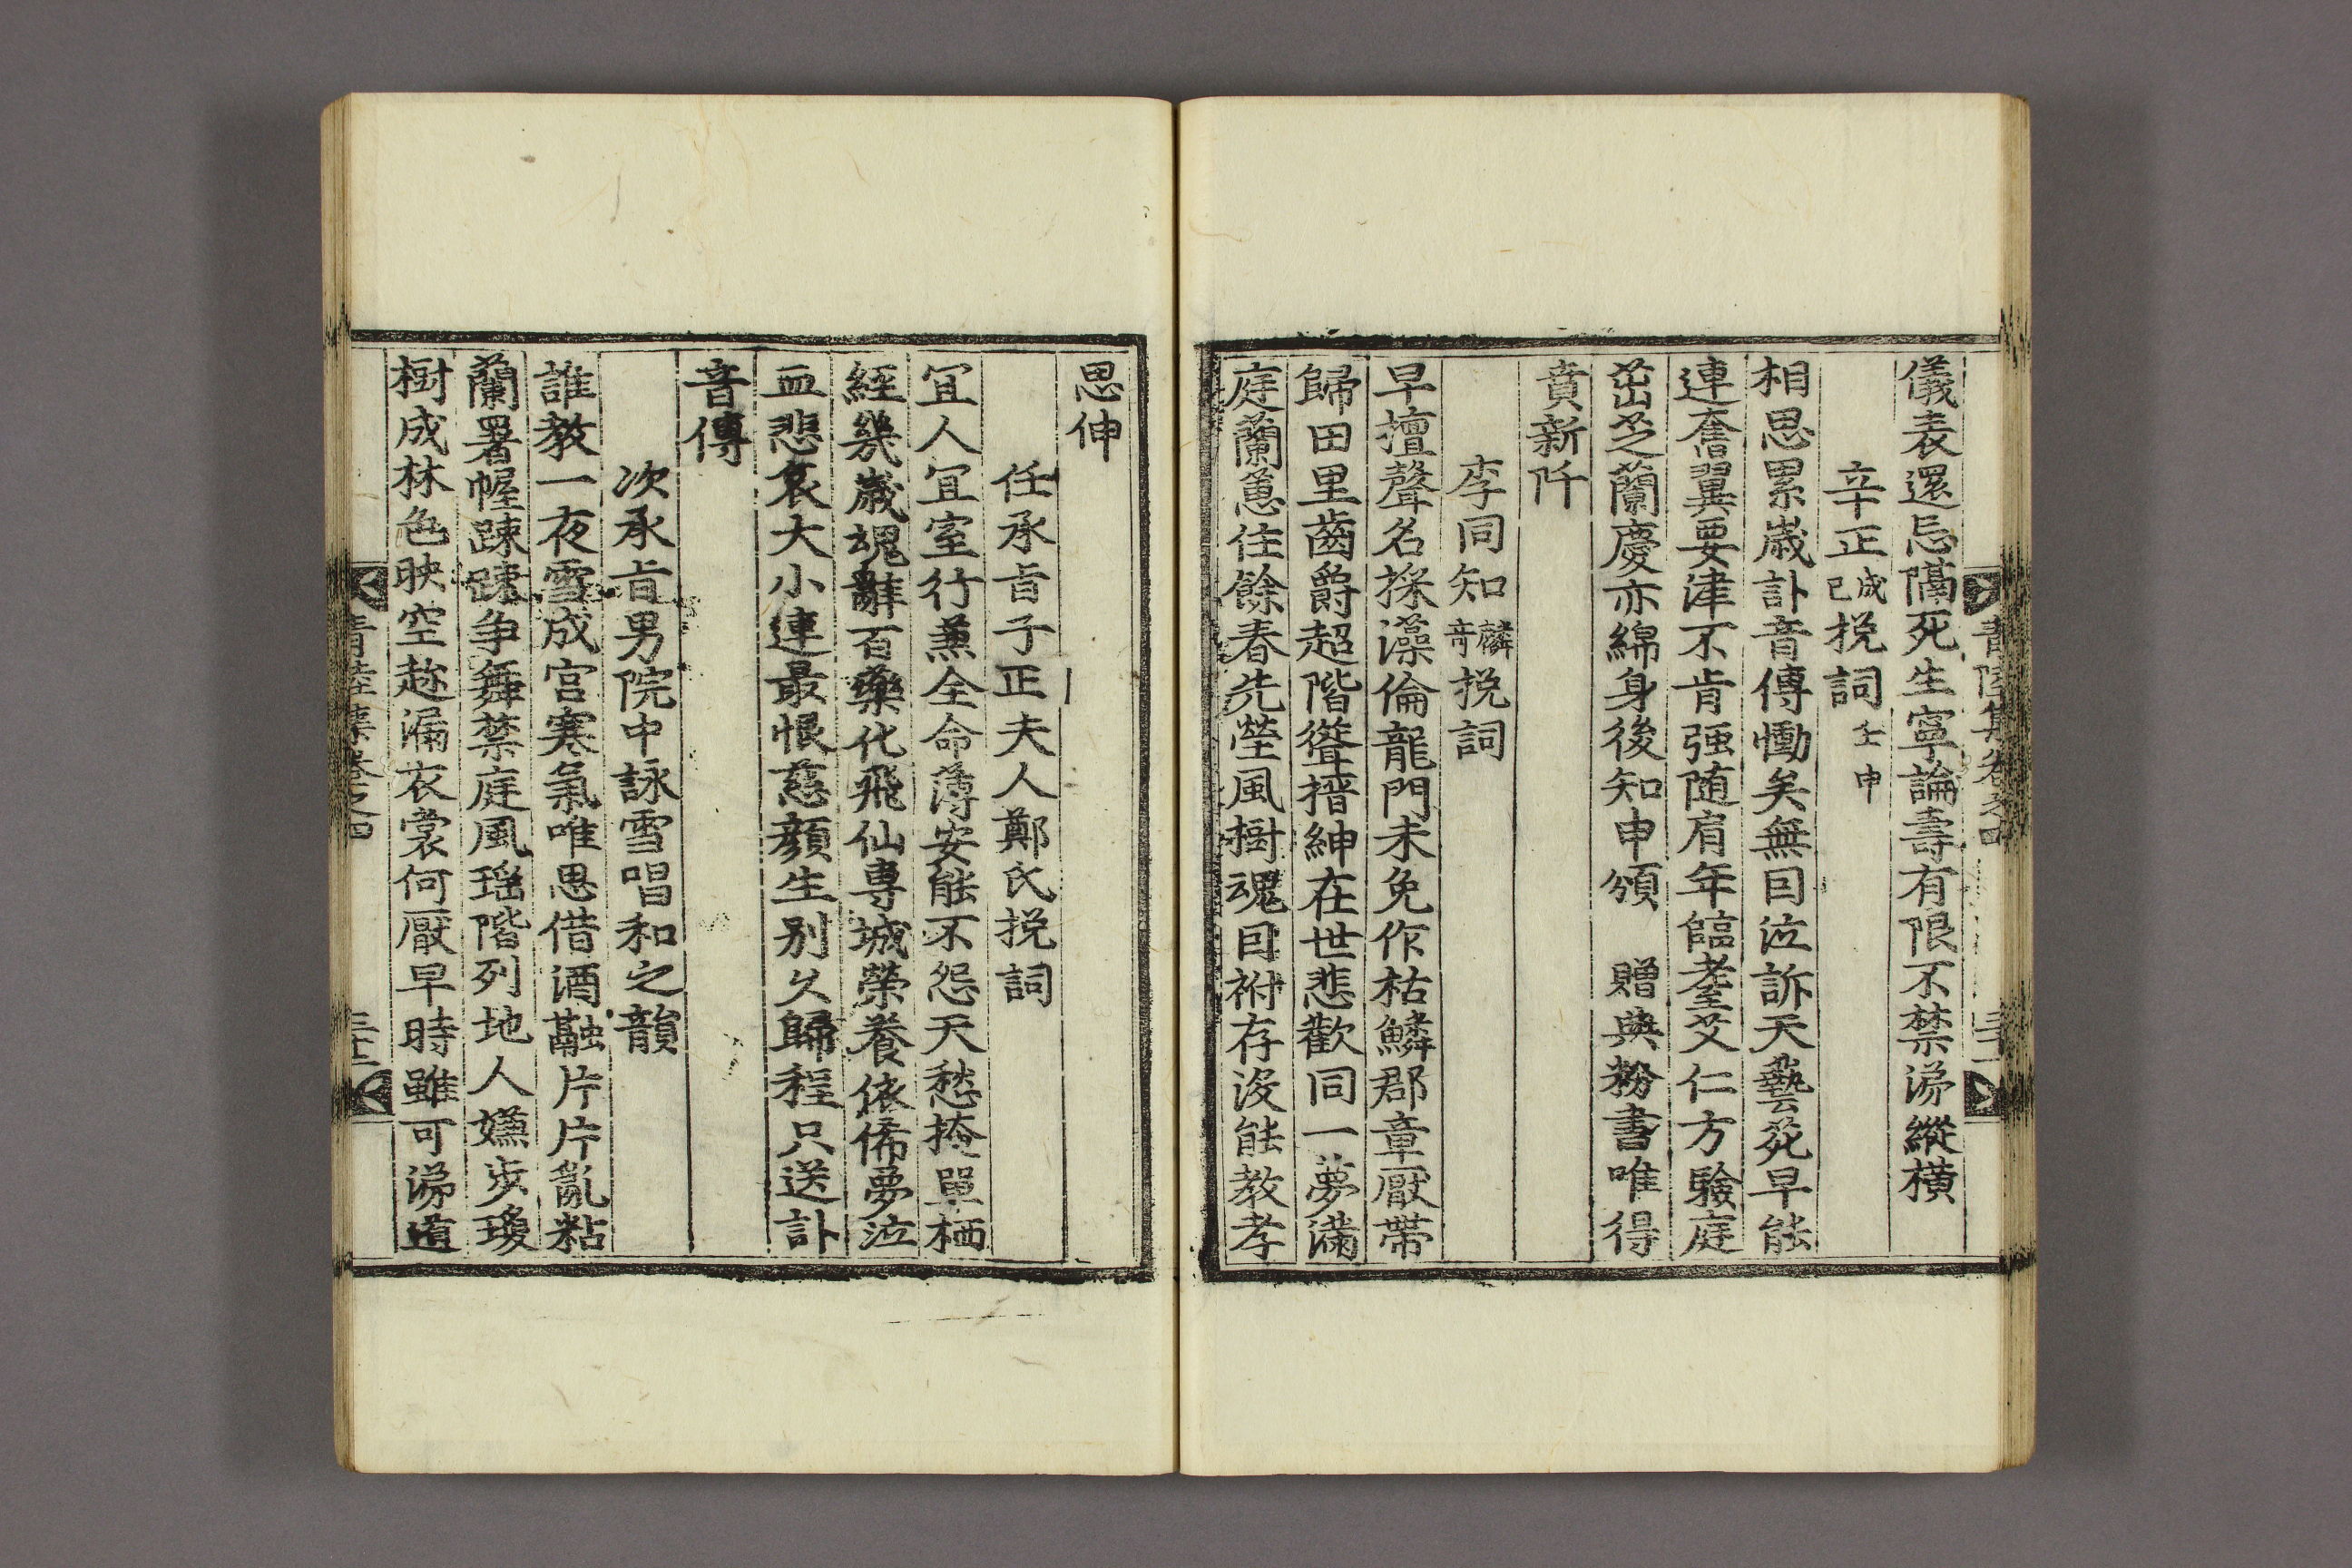 儀表還忘隔死生寧論壽有限不禁涕縱橫
辛正成己挽詞壬申
相思累歲訃音傳慟矣無因泣訴天藝苑早能
連奮翼要津不肯强随肩年臨耋艾仁方驗庭
茁芝蘭慶亦綿身後知申頒 贈典粉書唯得
賁新阡
李同知麟奇挽詞
早擅聲名採藻倫龍門未免作枯鱗郡章厭帶
歸田里齒爵超階聳搢紳在世悲歡同一夢滿
庭蘭蕙住餘春先塋風樹魂因祔存沒能教孝
思伸
任承旨子正夫人鄭氏挽詞
宜人宜室行蕙全命薄安能不怨天愁掩單栖
經幾歲魂離百藥化飛仙專城榮養依俙夢泣
血悲哀大小連最恨慈顔生别久歸程只送訃
音傳
次承旨男院中詠雪唱和之韻
誰教一夜雪成宮寒氣唯思借酒融片片片亂粘
蘭署幄踈踈争舞禁庭風瑶階列地人嫌步瓊
樹成林色映空趂漏衣裳何厭早時雖可涕道
青陸集卷之四